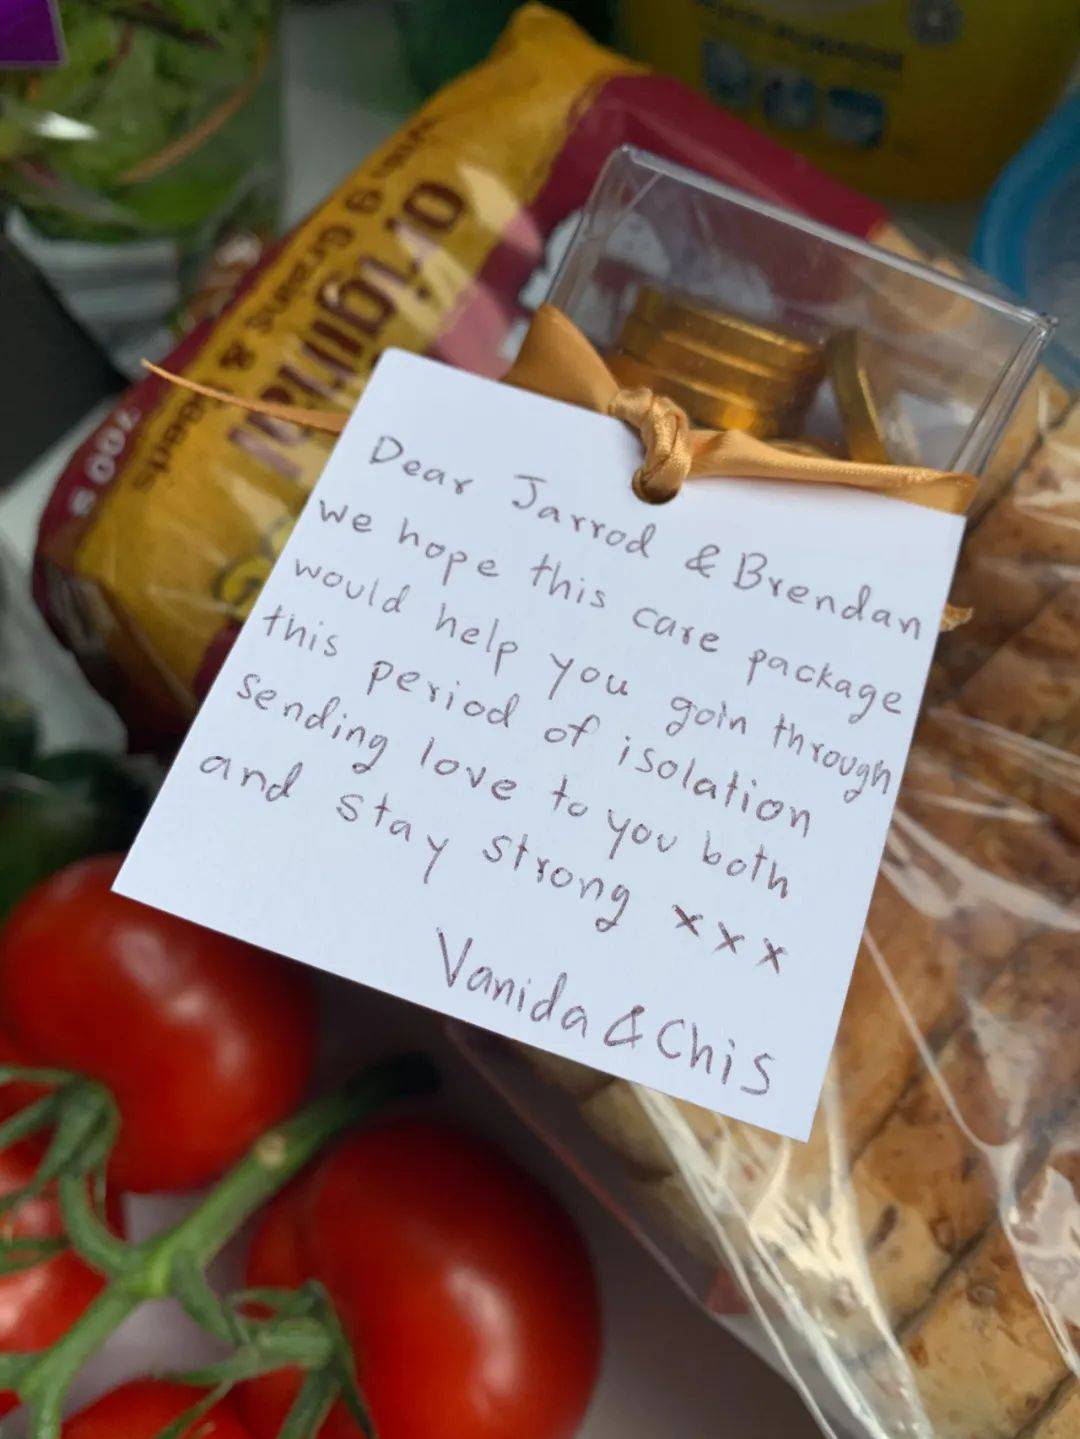 Dear Jarrod & Brendan
we hope this care package
would help you goin through
this period of isolation
sending love to you both
and stay strong xxx
Vanida & Chis
original
Grains &
700 g